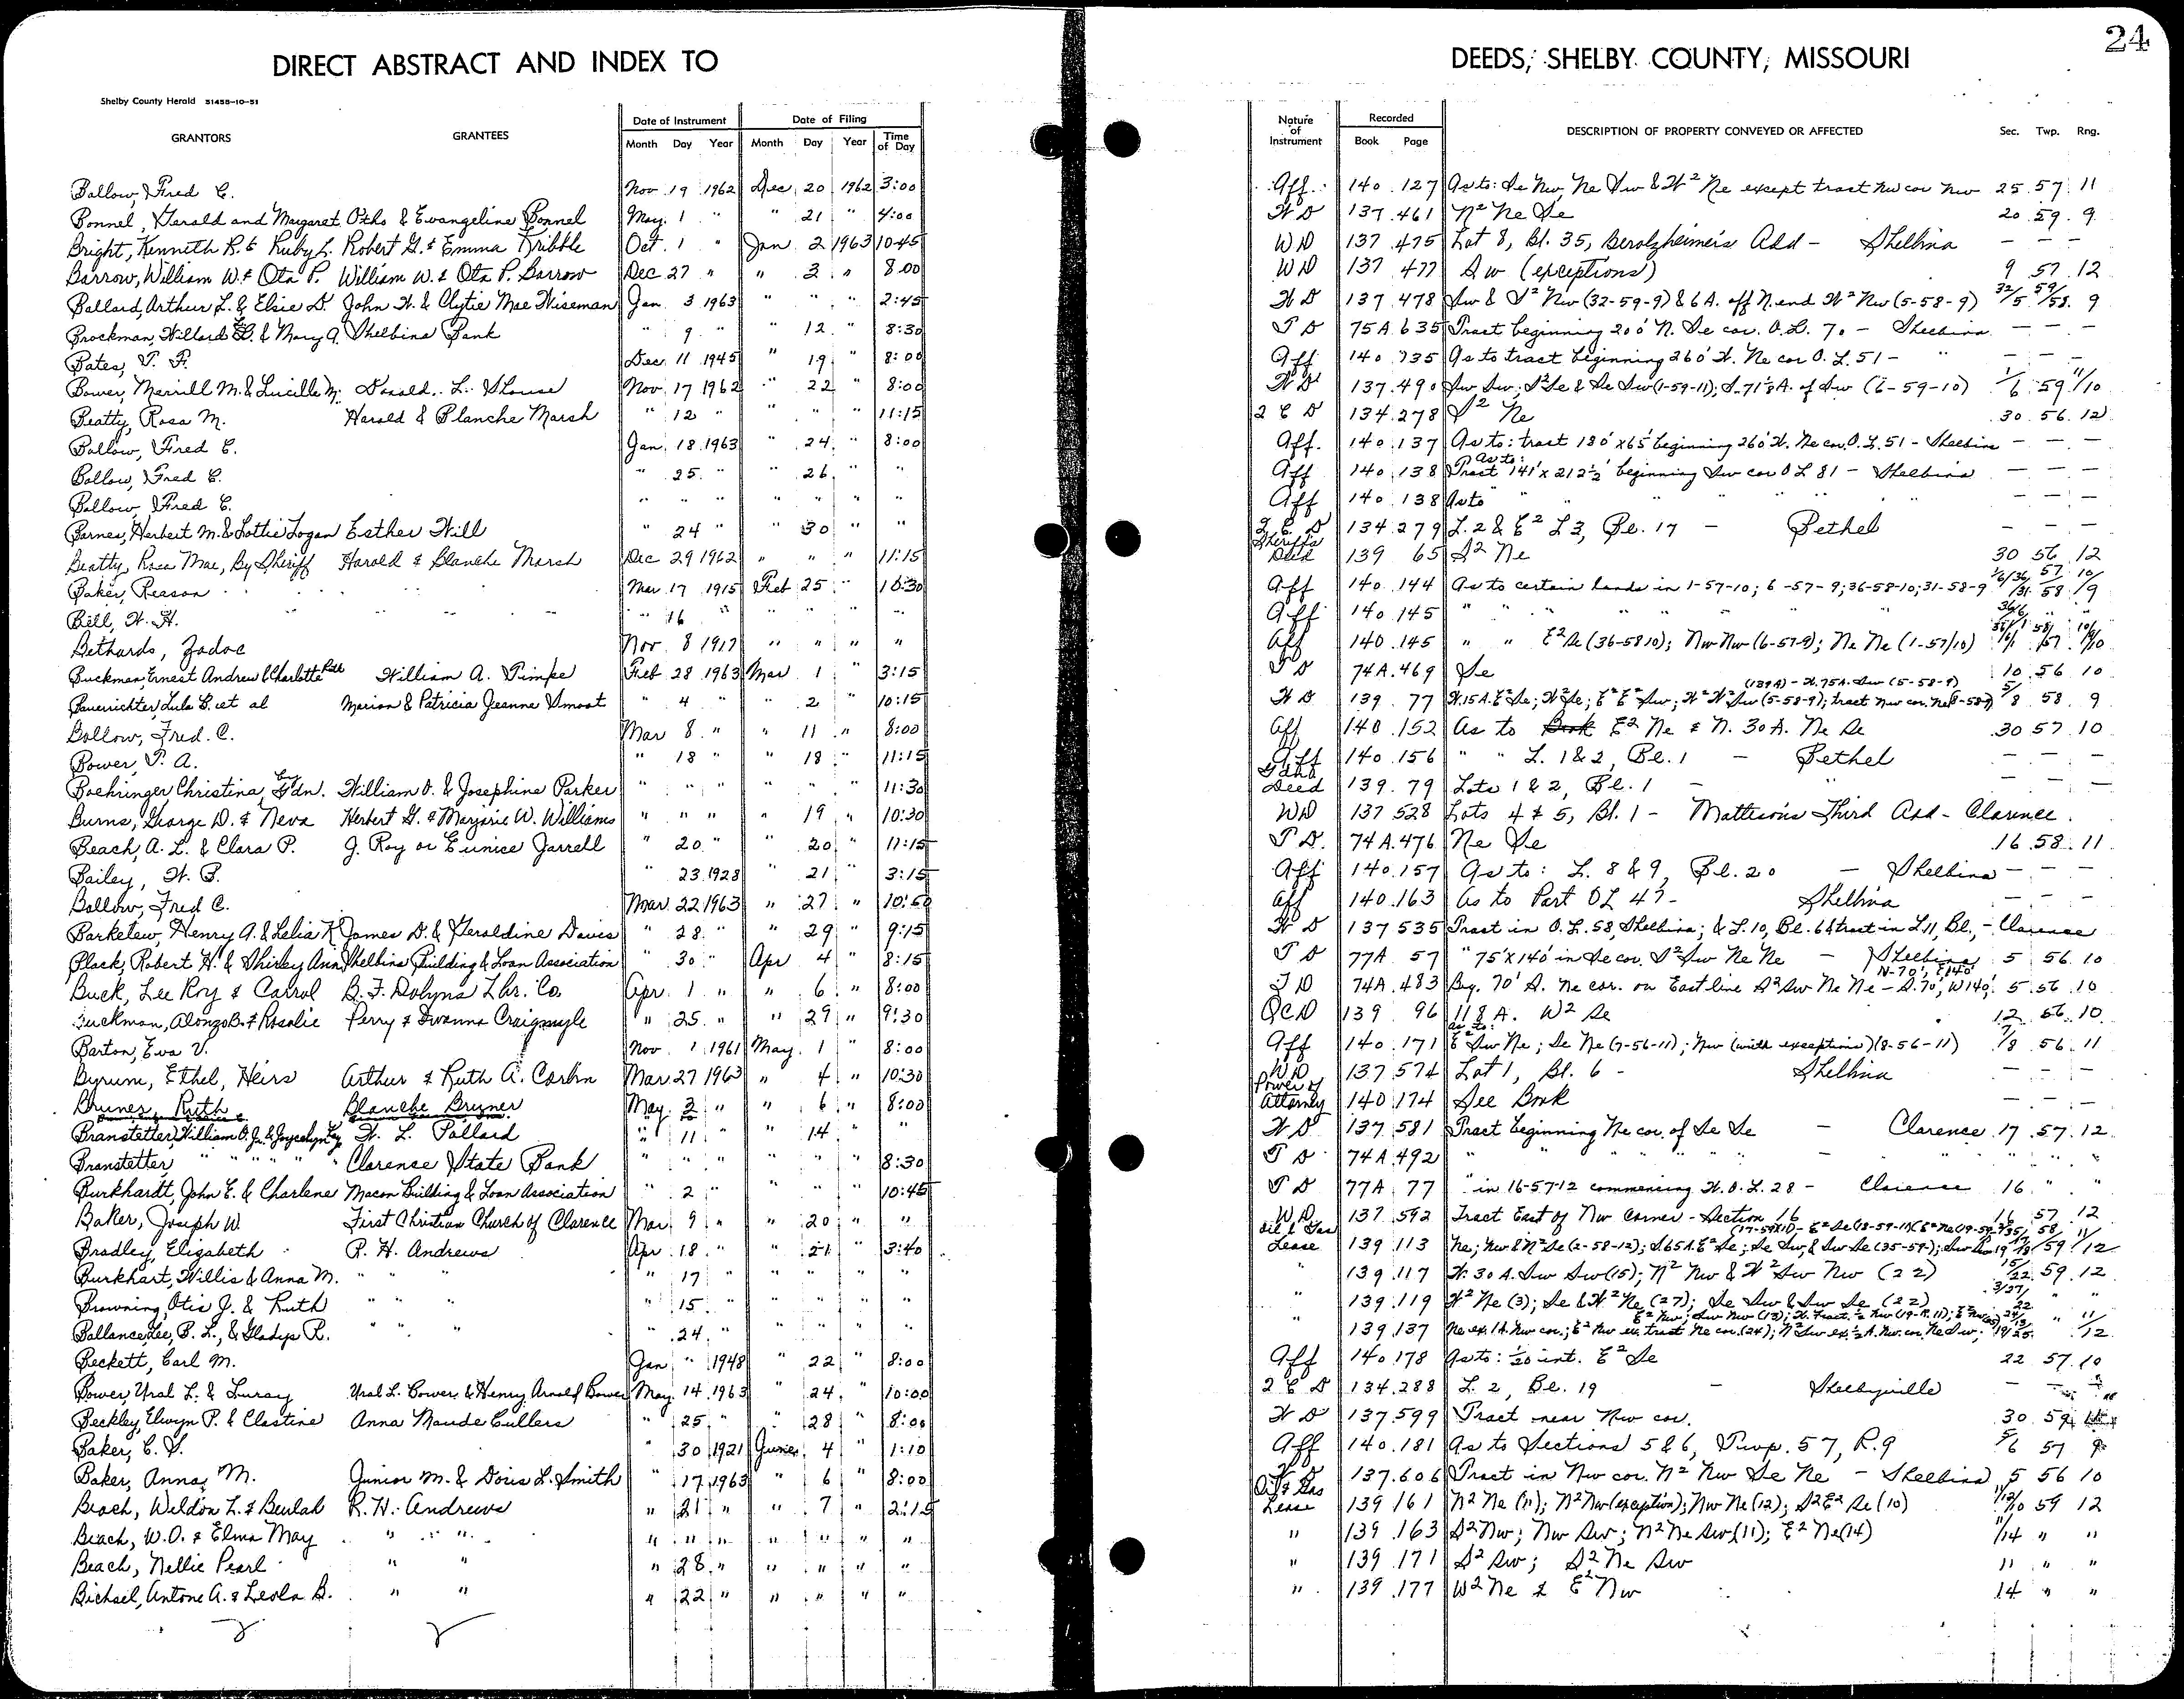 24
DIRECT ABSTRACT AND INDEX TO DEEDS, SHELBY COUNTY, MISSOURI
Shelby County Herald 51458-10-51
GRANTORS GRANTEES Date of Instrument Date of Filing Nature of Instrument Recorded DESCRIPTION OF PROPERTY CONVEYED OR AFFECTED Sec. Twp. Rng.
Month Day Year Month Day Year Time of Day Book Page
Ballow, Fred C. Nov 19 1962 Dec 20 1962 3:00 Aff. 140 127 As to: Se Nw, Ne Sw & W² Ne except tract Nw cor Nw 25 57 11
Bonnel, Gerald and Margaret Otho & Evangeline Bonnel May 1 " " 21 " 4:00 W D 137 461 N² Ne Se 20 59 9
Bright, Kenneth R. & Ruby L. Robert G. & Emma Kribble Oct. 1 " Jan 2 1963 10:45 WD 137 475 Lot 8, Bl. 35, Berolzheimer's Add - Shelbina — — —
Barrow, William W. & Ota P. William W. & Ota P. Barrow Dec 27 " " 3 " 8:00 WD 137 477 Sw (exceptions) 9 57 12
Ballard, Arthur L. & Elsie D. John W. & Clytie Mae Wiseman Jan 3 1963 " " " 2:45 W D 137 478 Sw & S² Nw (32-59-9) & 6 A. off N. end W² Nw (5-58-9) 32/5 59/58 9
Brockman, Willard & Mary A. Shelbina Bank " 9 " " 12 " 8:30 T D 75A 635 Tract beginning 200' N. Se cor. O.L. 70 - Shelbina — — —
Bates, T. F. Dec 11 1945 " 19 " 8:00 Aff 140 735 As to tract beginning 260' W. Ne cor O.L. 51 - " — — —
Bower, Merrill M. & Lucille M. Donald L. Shouse Nov 17 1962 " 22 " 8:00 W D 137 490 Sw Sw; S² Se & Se Sw (1-59-11); S. 71 A. of Sw (6-59-10) 1/6 59 11/10
Beatty, Rosa M. Harold & Blanche Marsh " 12 " " " " 11:15 2 C D 134 278 S² Ne 30 56 12
Ballow, Fred C. Jan 18 1963 " 24 " 8:00 Aff. 140 137 As to: tract 180' x 65' beginning 260' W. Ne cor. O.L. 51 - Shelbina — — —
Ballow, Fred C. " 25 " " 26 " " Aff 140 138 As to: Tract 141' x 212½' beginning Sw cor O L 81 - Shelbina — — —
Ballow, Fred C. " " " " " " " Aff 140 138 As to " " " " " — — —
Barnes, Herbert M. & Lottie Logan Esther Will " 24 " " 30 " " 2 C D 134 279 L. 2 & E² L 3, Bl. 17 - Bethel — — —
Beatty, Rosa Mae, By Sheriff Harold & Blanche Marsh Dec 29 1962 " " " 11:15 Sheriff's Deed 139 65 S² Ne 30 56 12
Baker, Reason Mar 17 1915 Feb 25 " 10:30 Aff 140 144 As to certain lands in 1-57-10; 6-57-9; 36-58-10; 31-58-9 1/6/36/31 57/58 10/9
Bill, W. H. " 16 " " " " " Aff 140 145 " " " "
Bethards, Zadoc Nov 8 1917 " " " " Aff 140 145 " " E² Se (36-58 10); Nw Nw (6-57-9); Ne Ne (1-57/10)
Buckman, Ernest Andrew & Charlotte Ruth William A. Timpe Feb 28 1963 Mar 1 " 3:15 T D 74A 469 Se 10 56 10
Bauerrichter, Lula B. et al Marion & Patricia Jeanne Smoot " 4 " " 2 " 10:15 W D 139 77 W. 15 A. E² Se; W² Se; E² E² Sw; W² W² Sw (5-58-9); tract Nw cor. Ne (8-58-9) (139 A) - W. 75 A. Sw (5-58-9) 5/8 58 9
Ballow, Fred. C. Mar 8 " " 11 " 8:00 Aff 140 152 As to Book E² Ne & N. 30 A. Ne Se 30 57 10
Bower, T. A. " 18 " " 18 " 11:15 Aff 140 156 " " L. 1 & 2, Bl. 1 - Bethel — — —
Boehringer Christina, by Gdn. William O. & Josephine Parker " " " " " " 11:30 Gdn's Deed 139 79 Lots 1 & 2, Bl. 1 - " — — —
Burns, George D. & Neva Herbert G. & Marjorie W. Williams " " " " 19 " 10:30 WD 137 528 Lots 4 & 5, Bl. 1 - Mattison's Third Add - Clarence
Beach, A. L. & Clara P. J. Roy or Eunice Jarrell " 20 " " 20 " 11:15 T D. 74A 476 Ne Se 16 58 11
Bailey, W. B. " 23 1928 " 21 " 3:15 Aff 140 157 As to: L. 8 & 9, Bl. 20 - Shelbina — — —
Ballow, Fred C. Mar. 22 1963 " 27 " 10:50 Aff 140 163 As to Part OL 47 - Shelbina — — —
Barketew, Henry A. & Lelia K. James D. & Geraldine Davis " 28 " " 29 " 9:15 W D 137 535 Tract in O.L. 58, Shelbina; & L. 10, Bl. 6 & tract in L 11, Bl., - Clarence
Black, Robert H. & Shirley Ann Shelbina Building & Loan Association " 30 " Apr 4 " 8:15 T D 77A 57 " 75' x 140' in Se cor. S² Sw Ne Ne - Shelbina 5 56 10
Buck, Lee Roy & Carrol B. F. Dobyns Lbr. Co. Apr. 1 " " 6 " 8:00 T D 74A 483 Beg. 70' S. Ne cor. on East line S² Sw Ne Ne - S. 70', W 140', N-70', E 140' 5 56 10
Buckman, Alonzo B. & Rosalie Perry & Dwanna Craigmyle " 25 " " 29 " 9:30 QCD 139 96 118 A. W² Se 12 56 10
Barton, Eva V. Nov 1 1961 May 1 " 8:00 Aff 140 171 As to: E² Sw Ne; Se Ne (7-56-11); Nw (with exceptions) (8-56-11) 7/8 56 11
Byrum, Ethel, Heirs Arthur & Ruth A. Corbin Mar 27 1963 " 4 " 10:30 WD 137 574 Lot 1, Bl. 6 - Shelbina — — —
Bruner, Ruth Blanche Bruner May 3 " " 6 " 8:00 Power of Attorney 140 174 See Book — — —
Branstetter, William O. Jr. & Joycelyn Kay W. L. Pollard " 11 " " 14 " " W D 137 581 Tract beginning Ne cor. of Se Se - Clarence 17 57 12
Branstetter, " " " " " Clarence State Bank " " " " " " 8:30 T D 74A 492 " " " " " - " " " "
Burkhardt, John E. & Charlene Macon Building & Loan Association " 2 " " " " 10:45 T D 77A 77 " in 16-57-12 commencing W. O.L. 28 - Clarence 16 " "
Baker, Joseph W. First Christian Church of Clarence Mar 9 " " 20 " " WD 137 592 Tract East of Nw Corner - Section 16 16 57 12
Bradley, Elizabeth R. H. Andrews Apr 18 " " 21 " 3:40 Oil & Gas Lease 139 113 Ne; Nw & N² Se (2-58-12); S. 65 A. E² Se; Se Sw & Sw Se (35-59-)
Burkhart, Willis & Anna M. " " " " 17 " " " " " " 139 117 W. 30 A. Sw Sw (15); N² Nw & W² Sw Nw (22) 15/22 59 12
Browning, Otis J. & Ruth " " " " 15 " " " " " " 139 119 W² Ne (3); Se & W² Ne (27); Se Sw & Sw Se (22) 3/27/22 " "
Ballance, Lee, B. L., & Gladys R. " " " " 24 " " " " " " 139 137 Ne ex. 1 A. Nw cor.; E² Nw ex. tract Ne cor. (24); N² Sw ex. ½ A. Nw. cor. Ne Sw;
Beckett, Carl M. Jan " 1948 " 22 " 8:00 Aff 140 178 As to: 1/20 int. E² Se 22 57 10
Bower, Ural L. & Luray Ural L. Bower & Henry Arnold Bower May 14 1963 " 24 " 10:00 2 C D 134 288 L. 2, Bl. 19 - Shelbyville — —
Beckley, Elwyn P. & Clestine Anna Maude Cullers " 25 " " 28 " 8:00 W D 137 599 Tract near Nw cor. 30 59
Baker, C. S. " 30 1921 June 4 " 1:10 Aff 140 181 As to Sections 5 & 6, Twp. 57, R. 9 5/6 57 9
Baker, Anna M. Junior M. & Doris L. Smith " 17 1963 " 6 " 8:00 W D 137 606 Tract in Nw cor. N² Nw Se Ne - Shelbina 5 56 10
Beach, Weldon L. & Beulah R. H. Andrews " 21 " " 7 " 2:15 Oil & Gas Lease 139 161 N² Ne (11); N² Nw (exception); Nw Ne (12); S² E² Se (10) 11/12/10 59 12
Beach, W. O. & Elma May " " " " " " " " " " 139 163 S² Nw; Nw Sw; N² Ne Sw (11); E² Ne (14) 11/14 " "
Beach, Nellie Pearl " " " 28 " " " " " " 139 171 S² Sw; S² Ne Sw 11 " "
Bichsel, Antone A. & Leola B. " " " 22 " " " " " " 139 177 W² Ne & E² Nw 14 " "